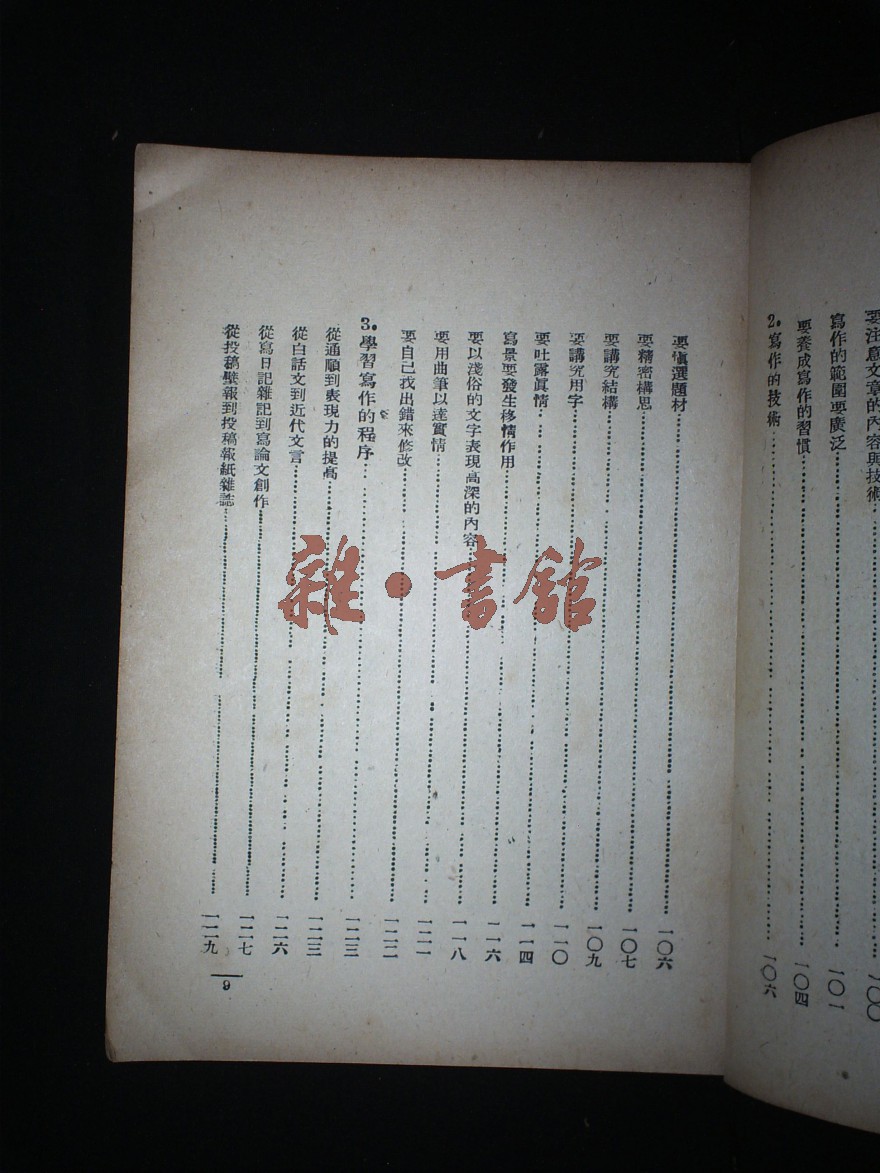 要注意文章的內容與技術……一〇〇
寫作的範圍要廣泛……一〇一
要養成寫作的習慣……一〇四
2.寫作的技術……一〇六
要愼選題材……一〇六
要精密構思……一〇七
要講究結構……一〇九
要講究用字……一一〇
要吐露眞情……一一四
寫景要發生移情作用……一一六
要以淺俗的文字表現高深的內容……一一八
要用曲筆以達實情……一二一
要自己找出錯來修改……一二二
3.學習寫作的程序……一二三
從通順到表現力的提高……一二三
從白話文到近代文言……一二六
從寫日記雜記到寫論文創作……一二七
從投稿壁報到投稿報紙雜誌……一二九
9
雜·書館